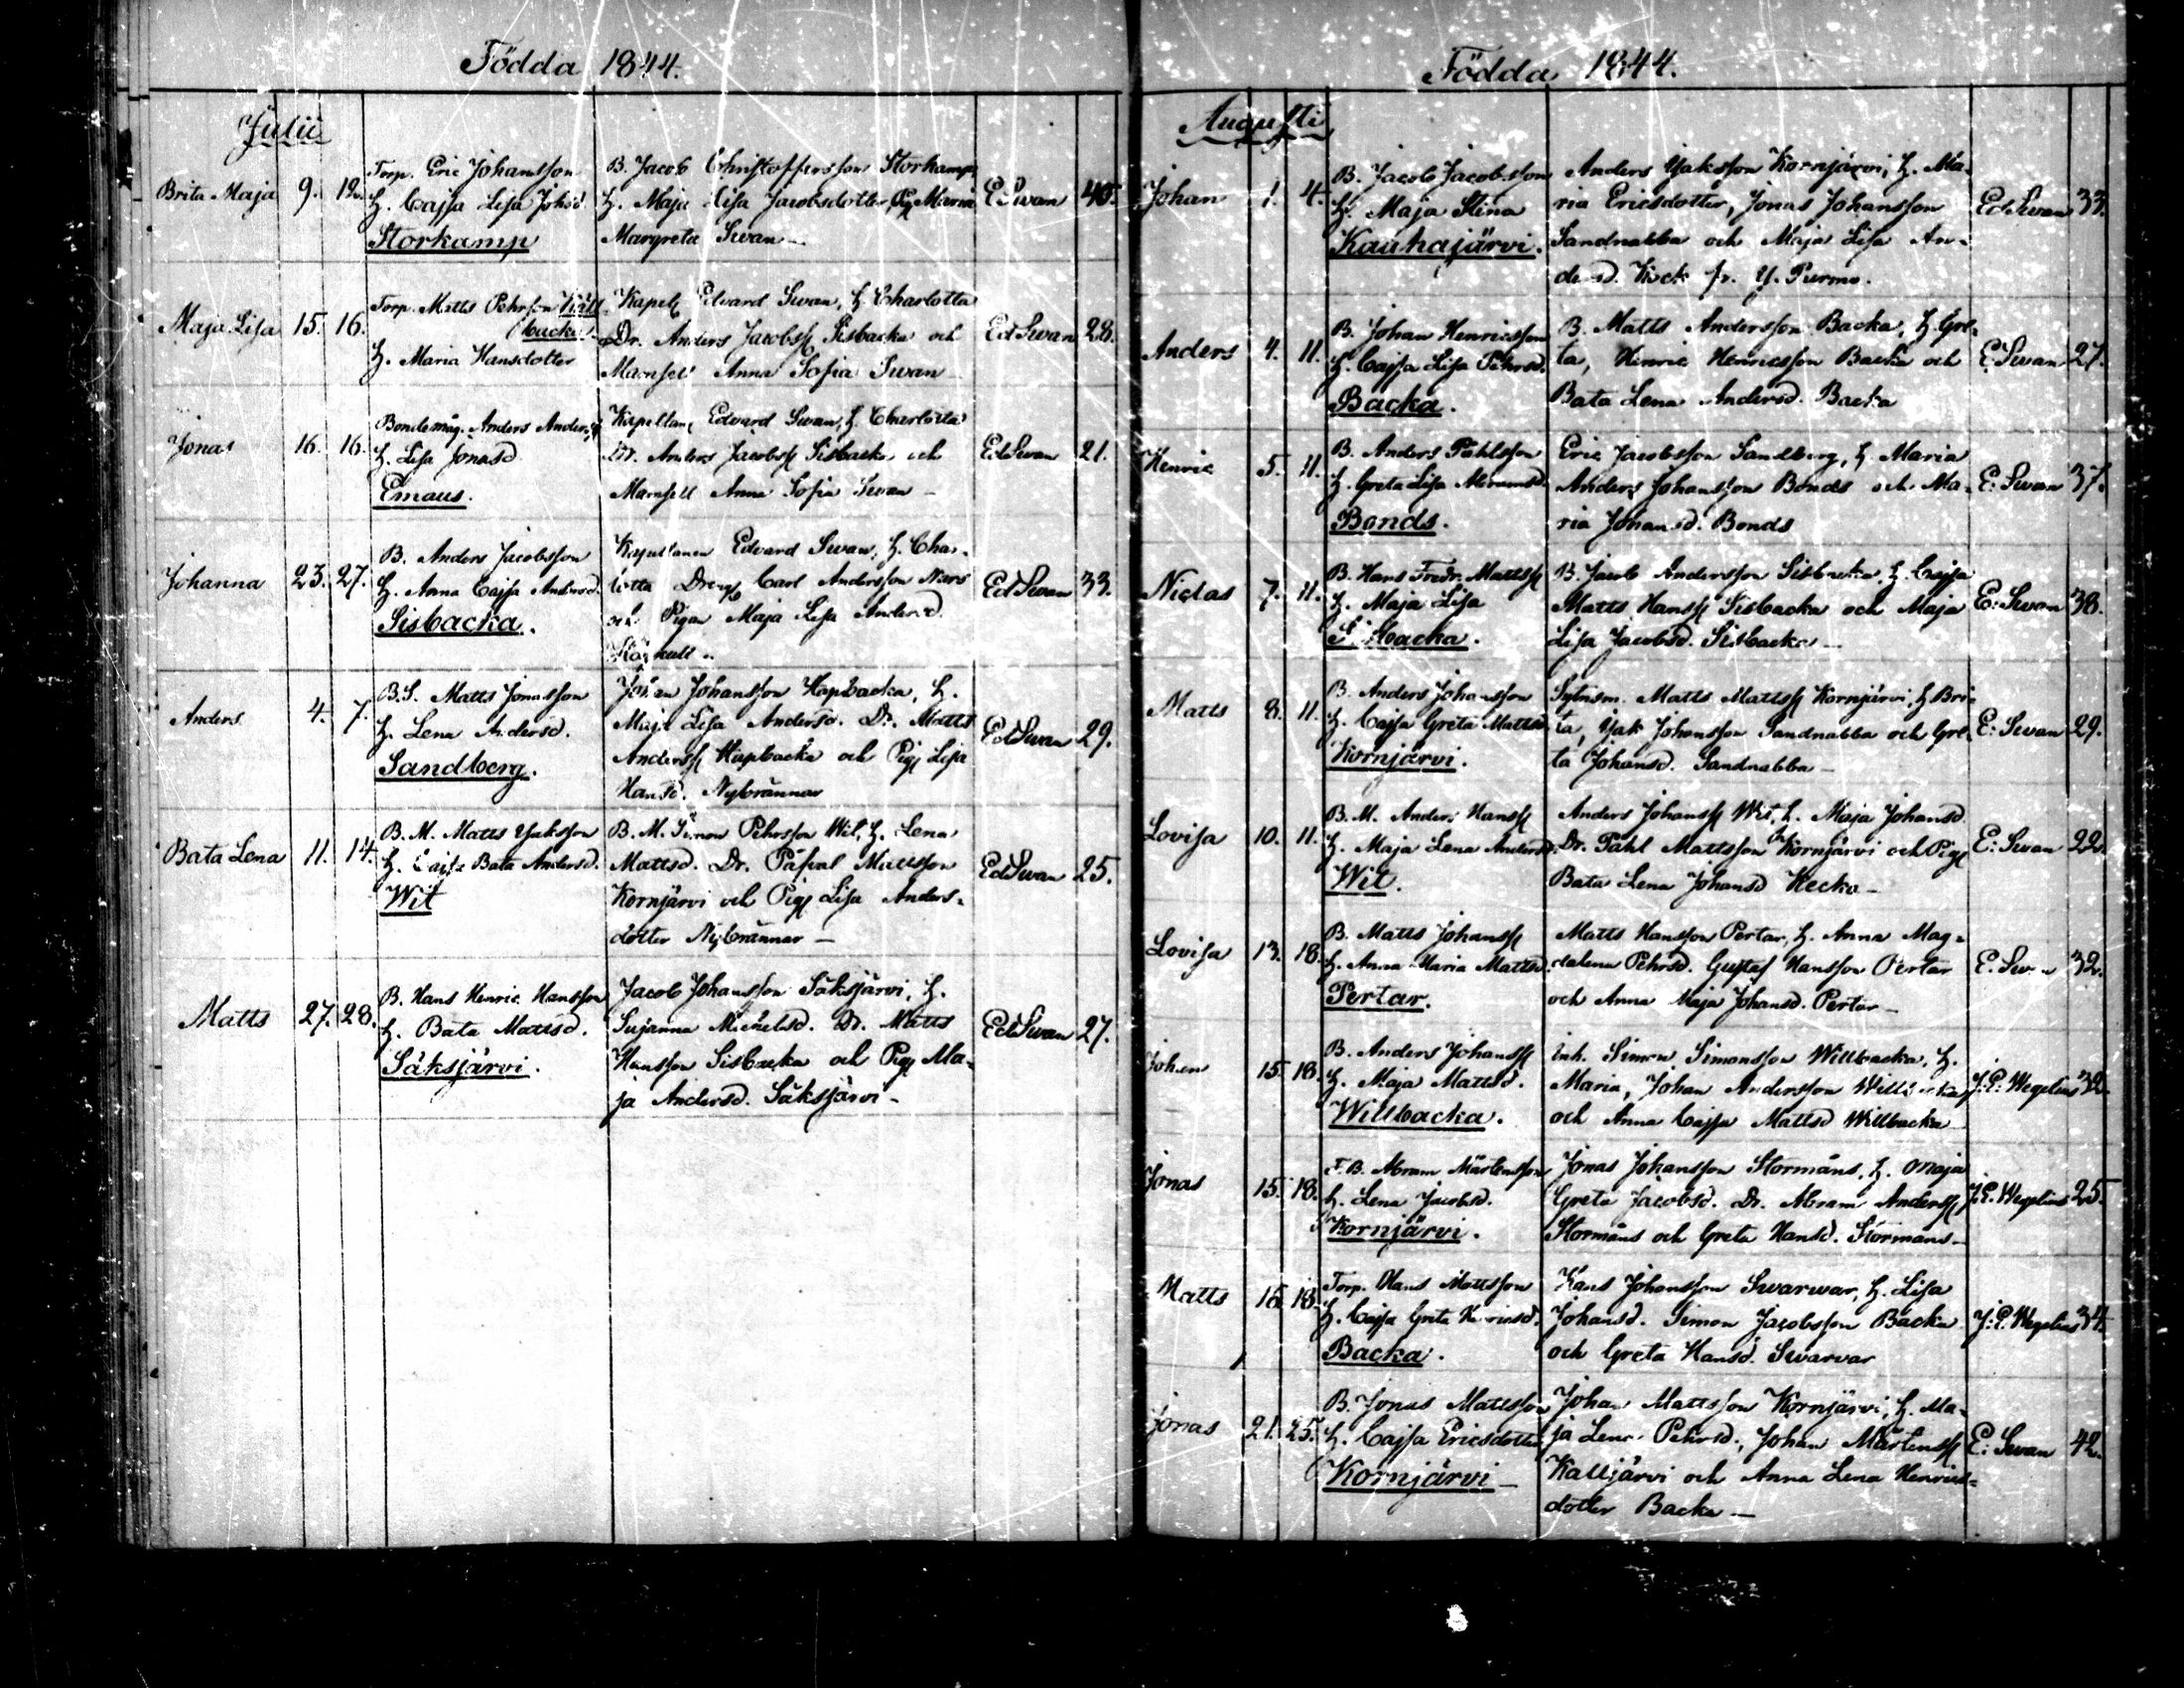 Födda 1844.
Julii
Brita Maja 9. 12. Torp. Eric Johansson B. Jacob Christoffersson Storkamp,
H. Cajsa Lisa Johsd. H. Maja Lisa Jacobsdotter, Pig Maria Ed Swan 40.
Storkamp Margreta Swan
Maja Lisa 15. 16. Torp. Matts Pehrsson Käll Kapel Edvard Swan, H. Charlotta
backa Dr. Anders Jacobss Sisbacka och Ed Swan 28.
H. Maria Hansdotter Mamsel Anna Sofia Swan
Jonas 16. 16. Bondemåg. Anders Anderss Kapellan Edvard Swan, H. Charlotta
H. Lisa Jonasd Dr. Anders Jacobss Sisbacka och Ed Swan 21.
Emaus. Mamsell Anna Sofia Swan
Johanna 23. 27. B. Anders Jacobsson Kapellanen Edvard Swan, H. Char-
H. Anna Cajsa Andersd. lotta Dreng Carl Andersson Ed Swan 33.
Sisbacka. och Pigan Maja Lisa Andersd.
Anders 4. 7. B.S. Matts Jonasson Johan Johansson Hapbacka, H.
H. Lena Andersd. Maja Lisa Andersd. Dr. Matts Ed Swan 29.
Sandberg. Anderss Hapbacka och Pig Lisa
Hansd. Nybrännar
Bata Lena 11. 14. B. M. Matts Ysaksson B. M. Simon Pehrsson Wit, H. Lena
H. Cajsa Bata Andersd. Mattsd. Dr. Mattsson Ed Swan 25.
Wit Kornjärvi och Pig Lisa Anders-
dotter Nybrännar
Matts 27. 28. B. Hans Henric Hansson Jacob Johansson Säksjärvi, H.
H. Bata Mattsd. Susanna Michelsd. Dr. Matts Ed Swan 27.
Säksjärvi. Hansson Sisbacka och Pig Ma-
ja Andersd. Säksjärvi
Födda 1844.
Augusti
Johan 1. 4. B. Jacob Jacobsson Anders Ysaksson Kornjärvi, H. Ma-
H. Maja Stina ria Ericsdotter, Jonas Johansson Ed Swan 33.
Kauhajärvi. Sandnabba och Maja Lisa An-
dersd. Kock fr. Y. Purmo.
Anders 4. 11. B. Johan Henricsson B. Matts Andersson Backa, H. Gre-
H. Cajsa Lisa Pehrsd. ta, Henric Henricsson Backa och E. Swan 27.
Backa. Bata Lena Andersd. Backa
Henric 5. 11. B. Anders Påhlsson Eric Jacobsson Sandberg, H. Maria
H. Greta Lisa Abramsd Anders Johansson Bonds och Ma- E. Swan 37.
Bonds. ria Johansd. Bonds
Niclas 7. 11. B. Hans Fredr. Mattss B. Jacob Andersson Sisbacka, H. Cajsa
H. Maja Lisa Matts Hanss Sisbacka och Maja E. Swan 38.
Sisbacka. Lisa Jacobsd. Sisbacka
Matts 8. 11. B. Anders Johansson Sytnsm. Matts Mattss Kornjärvi, H. Bri-
H. Cajsa Greta Mattsd ta, Ysak Johansson Sandnabba och Gre- E. Swan 29.
Kornjärvi. ta Johansd. Sandnabba
Lovisa 10. 11. B. M. Anders Hanss Anders Johanss Wit, H. Maja Johansd
H. Maja Lena Andersd. Dr. Påhl Mattsson Kornjärvi och Pig E. Swan 22.
Wit. Bata Lena Johansd Kecko
Lovisa 13. 18. B. Matts Johanss Matts Hansson Pertar, H. Anna Mag-
H. Anna Maria Mattsd dalena Pehrsd. Gustaf Hansson Pertar E. Swan 32.
Pertar. och Anna Maja Johansd. Pertar
Johan 15. 18. B. Anders Johanss Inh. Simon Simonsson Willbacka, H.
H. Maja Mattsd. Maria, Johan Andersson Willbacka J. P. Wegelius 32.
Willbacka. och Anna Cajsa Mattsd Willbacka
Jonas 15. 18. F. B. Abram Mårtensson Jonas Johansson Stormåns, H. Maja
H. Lena Jacobsd. Greta Jacobsd. Dr. Abram Anderss J. P. Wegelius 25.
Kornjärvi. Stormåns och Greta Hansd. Stormåns
Matts 18. Torp. Hans Mattsson Hans Johansson Swarvar, H. Lisa
H. Cajsa Greta Henricsd. Johansd. Simon Jacobsson Backa J. P. Wegelius 34.
Backa. och Greta Hansd. Swarvar
Jonas 21. 25. B. Jonas Mattsson Johan Mattsson Kornjärvi, H. Ma-
H. Cajsa Ericsdotter ja Lena Pehrsd., Johan Mårtenss E. Swan 42.
Kornjärvi Kalljärvi och Anna Lena Henrics-
dotter Backa